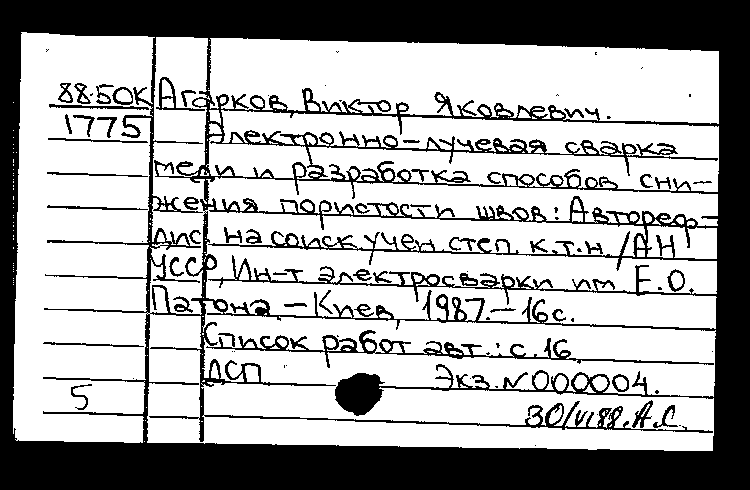 88-50К Агарков, Виктор Яковлевич.
1775 Электронно-лучевая сварка
меди и разработка способов сни-
жения пористости швов: Автореф.
дис. на соиск. учен. степ. к.т.н. / АН
УССР, Ин-т электросварки им. Е.О.
Патона. - Киев, 1987. - 16 с.
Список работ авт.: с. 16.
ДСП Экз. N 000004.
5 30/VI 88. А.С.